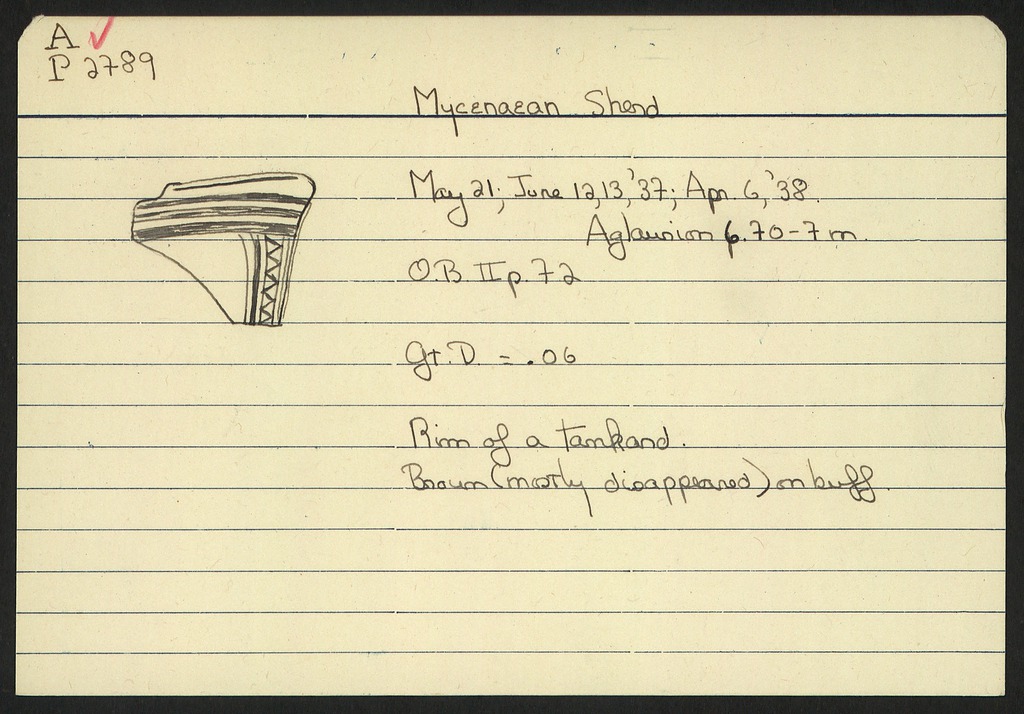 A ✓
P 2789
Mycenaean Sherd
May 21; June 12,13,'37; Apr. 6,'38.
Aglaurion 6.70-7 m.
O.B. II p. 72
Gt. D. = .06
Rim of a tankard.
Brown (mostly disappeared) on buff.